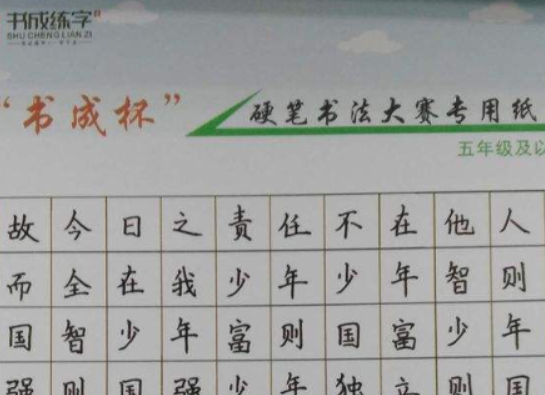 书成练字
SHU CHENG LIAN ZI
“书成杯”
硬笔书法大赛专用纸
五年级及以
故今日之责任不在他人
而全在我少年少年智则
国智少年富则国富少年
强则国强少年独立则国